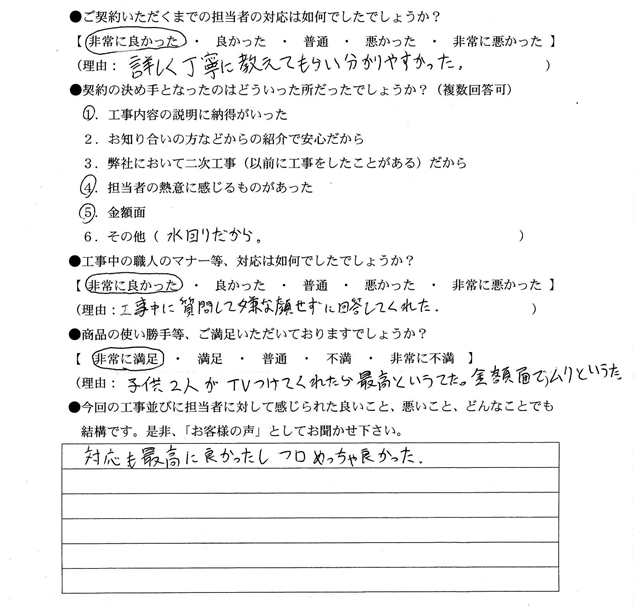 ●ご契約いただくまでの担当者の対応は如何でしたでしょうか？
【 非常に良かった ・ 良かった ・ 普通 ・ 悪かった ・ 非常に悪かった 】
（理由： 詳しく丁寧に教えてもらい分かりやすかった。 ）
●契約の決め手となったのはどういった所だったでしょうか？（複数回答可）
１．工事内容の説明に納得がいった
２．お知り合いの方などからの紹介で安心だから
３．弊社において二次工事（以前に工事をしたことがある）だから
４．担当者の熱意に感じるものがあった
５．金額面
６．その他（ 水回りだから。 ）
●工事中の職人のマナー等、対応は如何でしたでしょうか？
【 非常に良かった ・ 良かった ・ 普通 ・ 悪かった ・ 非常に悪かった 】
（理由：工事中に質問して嫌な顔せずに回答してくれた. ）
●商品の使い勝手等、ご満足いただいておりますでしょうか？
【 非常に満足 ・ 満足 ・ 普通 ・ 不満 ・ 非常に不満 】
（理由： 子供2人が TVつけてくれたら最高というてた。金額面でムリというた
●今回の工事並びに担当者に対して感じられた良いこと、悪いこと、どんなことでも
結構です。是非、「お客様の声」としてお聞かせ下さい。
対応も最高に良かったし フロめっちゃ良かった.